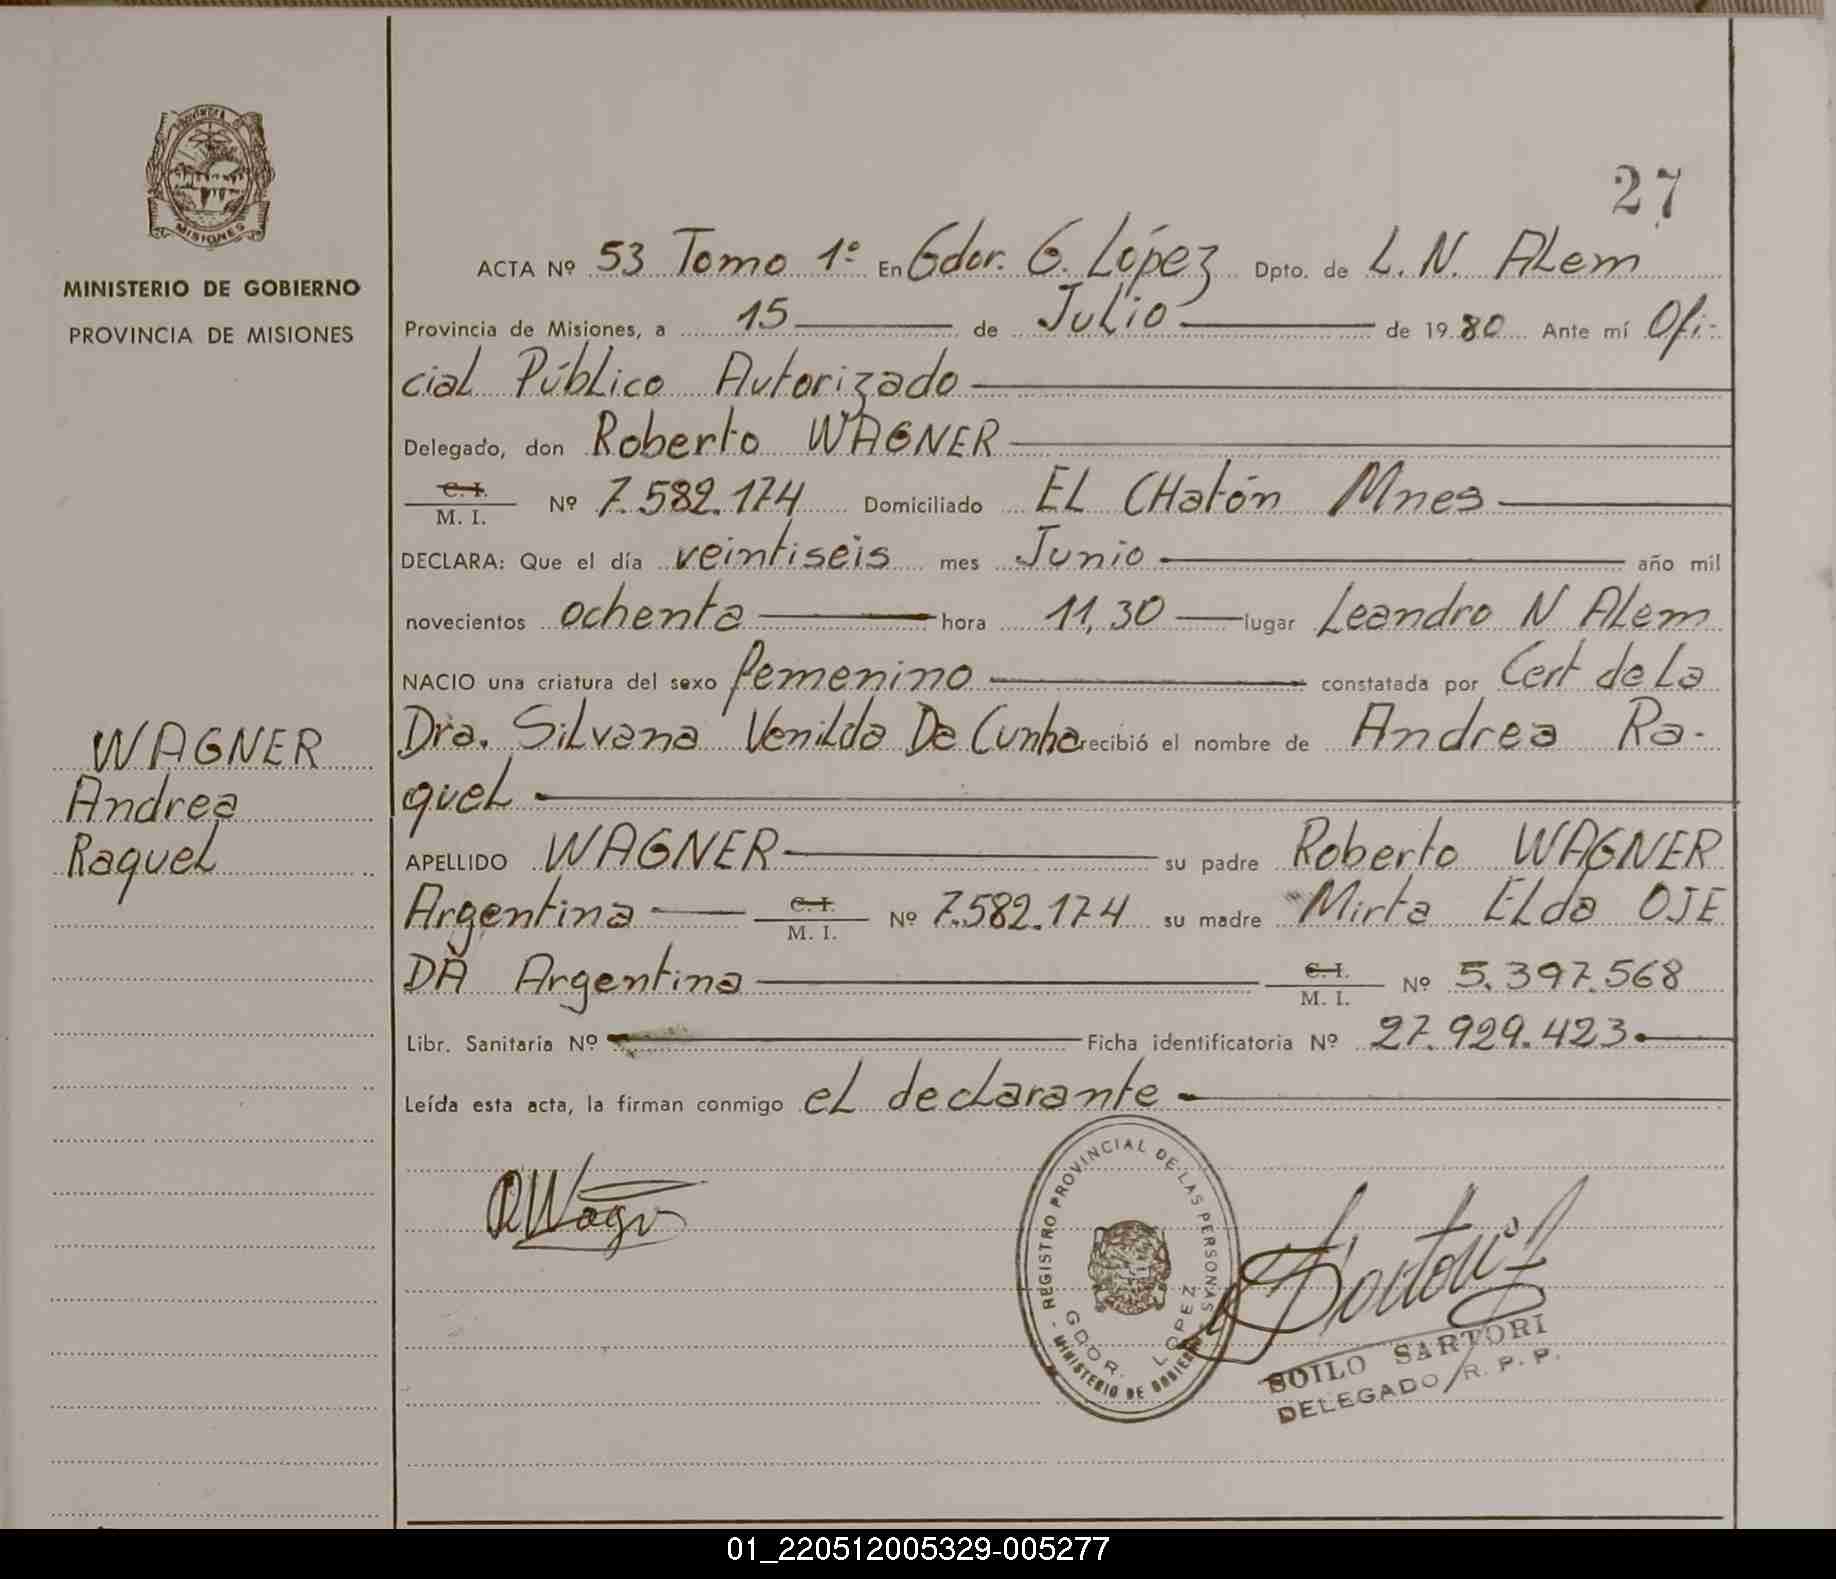 27
PROVINCIA DE
MISIONES
MINISTERIO DE GOBIERNO
PROVINCIA DE MISIONES
WAGNER
Andrea
Raquel
ACTA Nº 53 Tomo 1º En Gdor. G. López Dpto. de L. N. ALem
Provincia de Misiones, a 15 de Julio de 1980 Ante mí Ofi-
cial Público Autorizado
Delegado, don Roberto WAGNER
C. I. M. I. Nº 7.582.174 Domiciliado EL CHatón Mnes
DECLARA: Que el día veintiseis mes Junio año mil
novecientos ochenta hora 11,30 lugar Leandro N ALem
NACIO una criatura del sexo femenino constatada por Cert de La
Dra. Silvana Venilda Da Cunha recibió el nombre de Andrea Ra-
quel
APELLIDO WAGNER su padre Roberto WAGNER
Argentina C. I. M. I. Nº 7.582.174 su madre Mirta ELda OJE
DA Argentina C. I. M. I. Nº 5.397.568
Libr. Sanitaria Nº Ficha identificatoria Nº 27.929.423
Leída esta acta, la firman conmigo el declarante
RWagn
REGISTRO PROVINCIAL DE LAS PERSONAS
GDOR. LOPEZ
MINISTERIO DE GOBIERNO
Sartori
SOILO SARTORI
DELEGADO R. P. P.
01_220512005329-005277